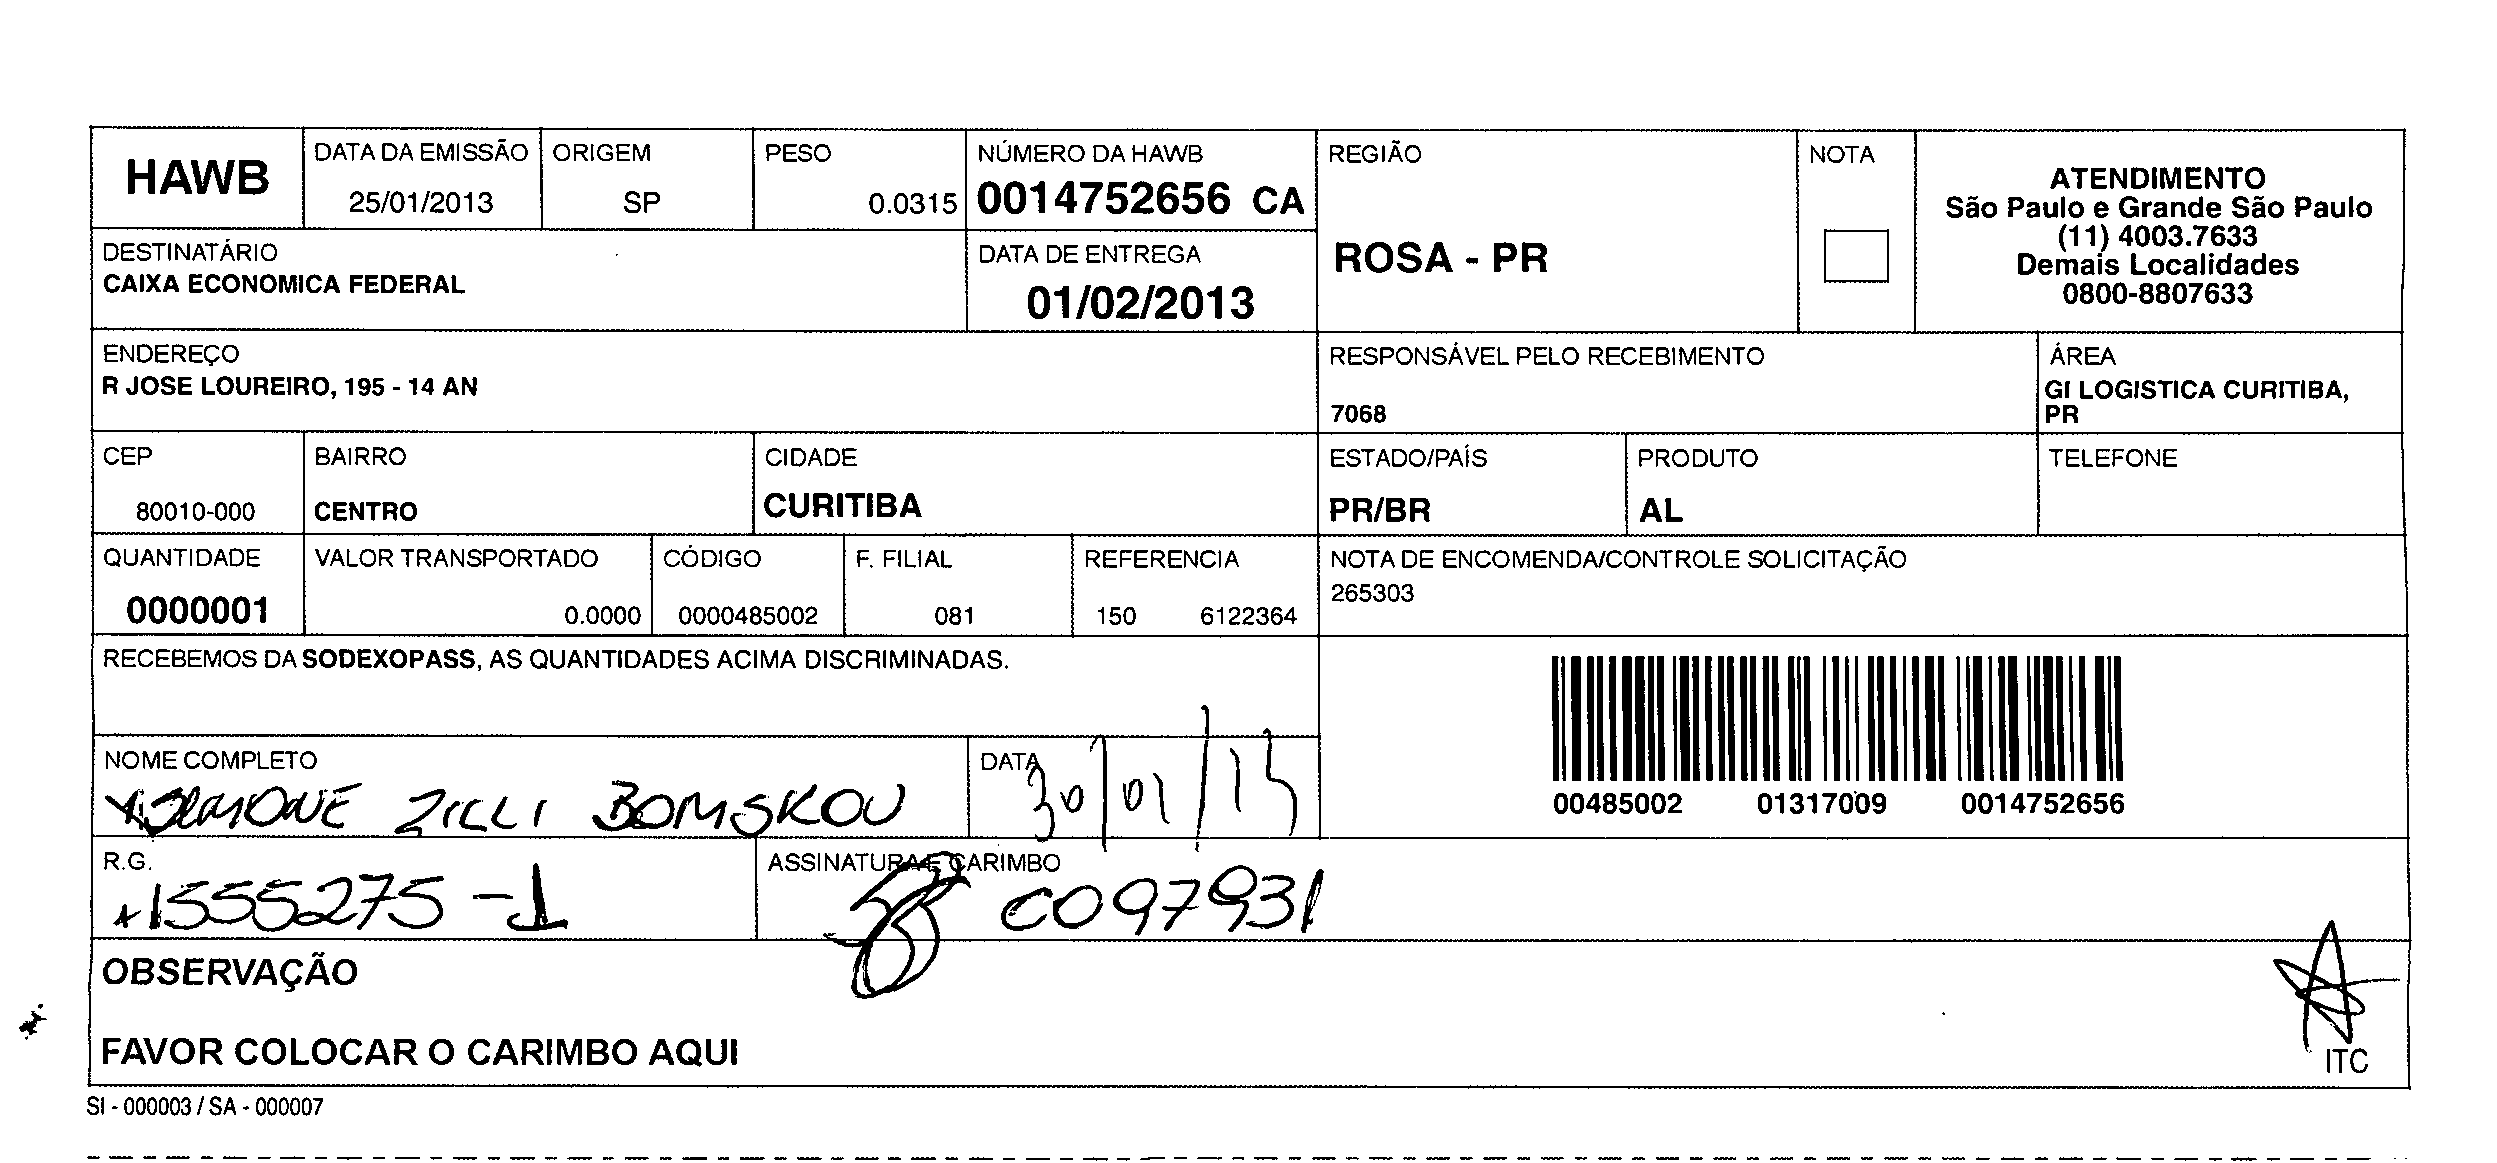 HAWB
DATA DA EMISSÃO
25/01/2013
ORIGEM
SP
PESO
0.0315
NÚMERO DA HAWB
0014752656 CA
REGIÃO
ROSA - PR
NOTA
ATENDIMENTO
São Paulo e Grande São Paulo
(11) 4003.7633
Demais Localidades
0800-8807633
DESTINATÁRIO
CAIXA ECONOMICA FEDERAL
DATA DE ENTREGA
01/02/2013
ENDEREÇO
R JOSE LOUREIRO, 195 - 14 AN
RESPONSÁVEL PELO RECEBIMENTO
7068
ÁREA
GI LOGISTICA CURITIBA,
PR
CEP
80010-000
BAIRRO
CENTRO
CIDADE
CURITIBA
ESTADO/PAÍS
PR/BR
PRODUTO
AL
TELEFONE
QUANTIDADE
0000001
VALOR TRANSPORTADO
0.0000
CÓDIGO
0000485002
F. FILIAL
081
REFERENCIA
150 6122364
NOTA DE ENCOMENDA/CONTROLE SOLICITAÇÃO
265303
RECEBEMOS DA SODEXOPASS, AS QUANTIDADES ACIMA DISCRIMINADAS.
00485002 01317009 0014752656
NOME COMPLETO
SIMONE ZILLI BOMSKOV
DATA
30/01/13
R.G.
1555275-1
ASSINATURA E CARIMBO
C097931
OBSERVAÇÃO
FAVOR COLOCAR O CARIMBO AQUI
ITC
SI - 000003 / SA - 000007